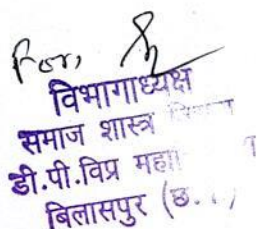 For,
विभागाध्यक्ष
समाज शास्त्र
डी.पी.विप्र
बिलासपुर